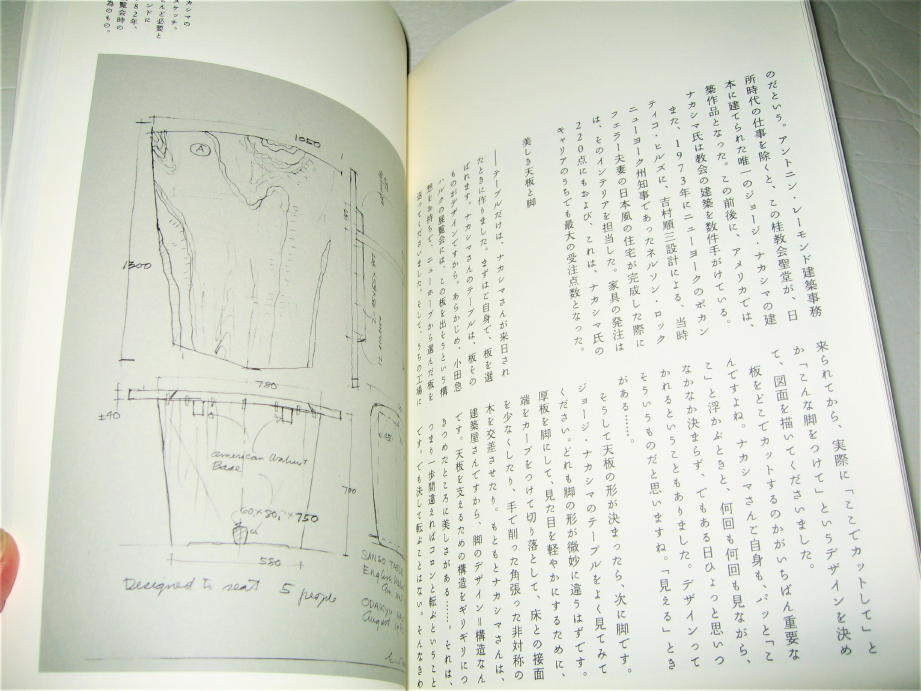 のだという。アントニン・レーモンド建築事務
所時代の仕事を除くと、この桂教会聖堂が、日
本に建てられた唯一のジョージ・ナカシマの建
築作品となった。この前後に、アメリカでは、
ナカシマ氏は教会の建築を数件手がけている。
また、1973年にニューヨークのポカン
ティコ・ヒルズに、吉村順三設計による、当時
ニューヨーク州知事であったネルソン・ロック
フェラー夫妻の日本風の住宅が完成した際に
は、そのインテリアを担当した。家具の発注は
220点にもおよび、これは、ナカシマ氏の
キャリアのうちでも最大の受注点数となった。
美しき天板と脚
──テーブルだけは、ナカシマさんが来日され
たときに作りました。まずはご自身で、板を選
ばれます。ナカシマさんのテーブルは、板その
ものがデザインですから。あらかじめ、小田急
ハルクの展覧会には、この板を出そうという構
想をお持ちで、ニューホープから選んだ板を
送ってくださいました。そして、うちの工場に
来られてから、実際に「ここでカットして」と
か「こんな脚をつけて」というデザインを決め
て、図面を描いてくださいました。
板をどこでカットするのかがいちばん重要な
んですよね。ナカシマさんご自身も、パッと「こ
こ」と浮かぶときと、何回も何回も見ながら、
なかなか決まらず、でもある日ひょっと思いつ
かれるということもありました。デザインって
そういうものだと思いますね。「見える」とき
がある……。
そうして天板の形が決まったら、次に脚です。
ジョージ・ナカシマのテーブルをよく見てみて
ください。どれも脚の形が微妙に違うはずです。
厚板を脚にして、見た目を軽やかにするために、
端をカーブをつけて切り落として、床との接面
を少なくしたり、手で削った角張った非対称の
木を交差させたり。もともとナカシマさんは、
建築屋さんですから、脚のデザイン＝構造なん
です。天板を支えるための構造をギリギリにつ
きつめたところに美しさがある……。それは、
つまり一歩間違えればコロンと転ぶということ
です。でも決して転ぶことはない。そんなきわ
カシマの
スケッチ。
とんど必要と
ンドに
82年、
展覧会時の
為のもの。
1050
A
1300
780
±40
american Walnut
Base
700
60×80,×750
550
Designed to seat 5 people
SANSO TABLE
English
ODAKYU
August